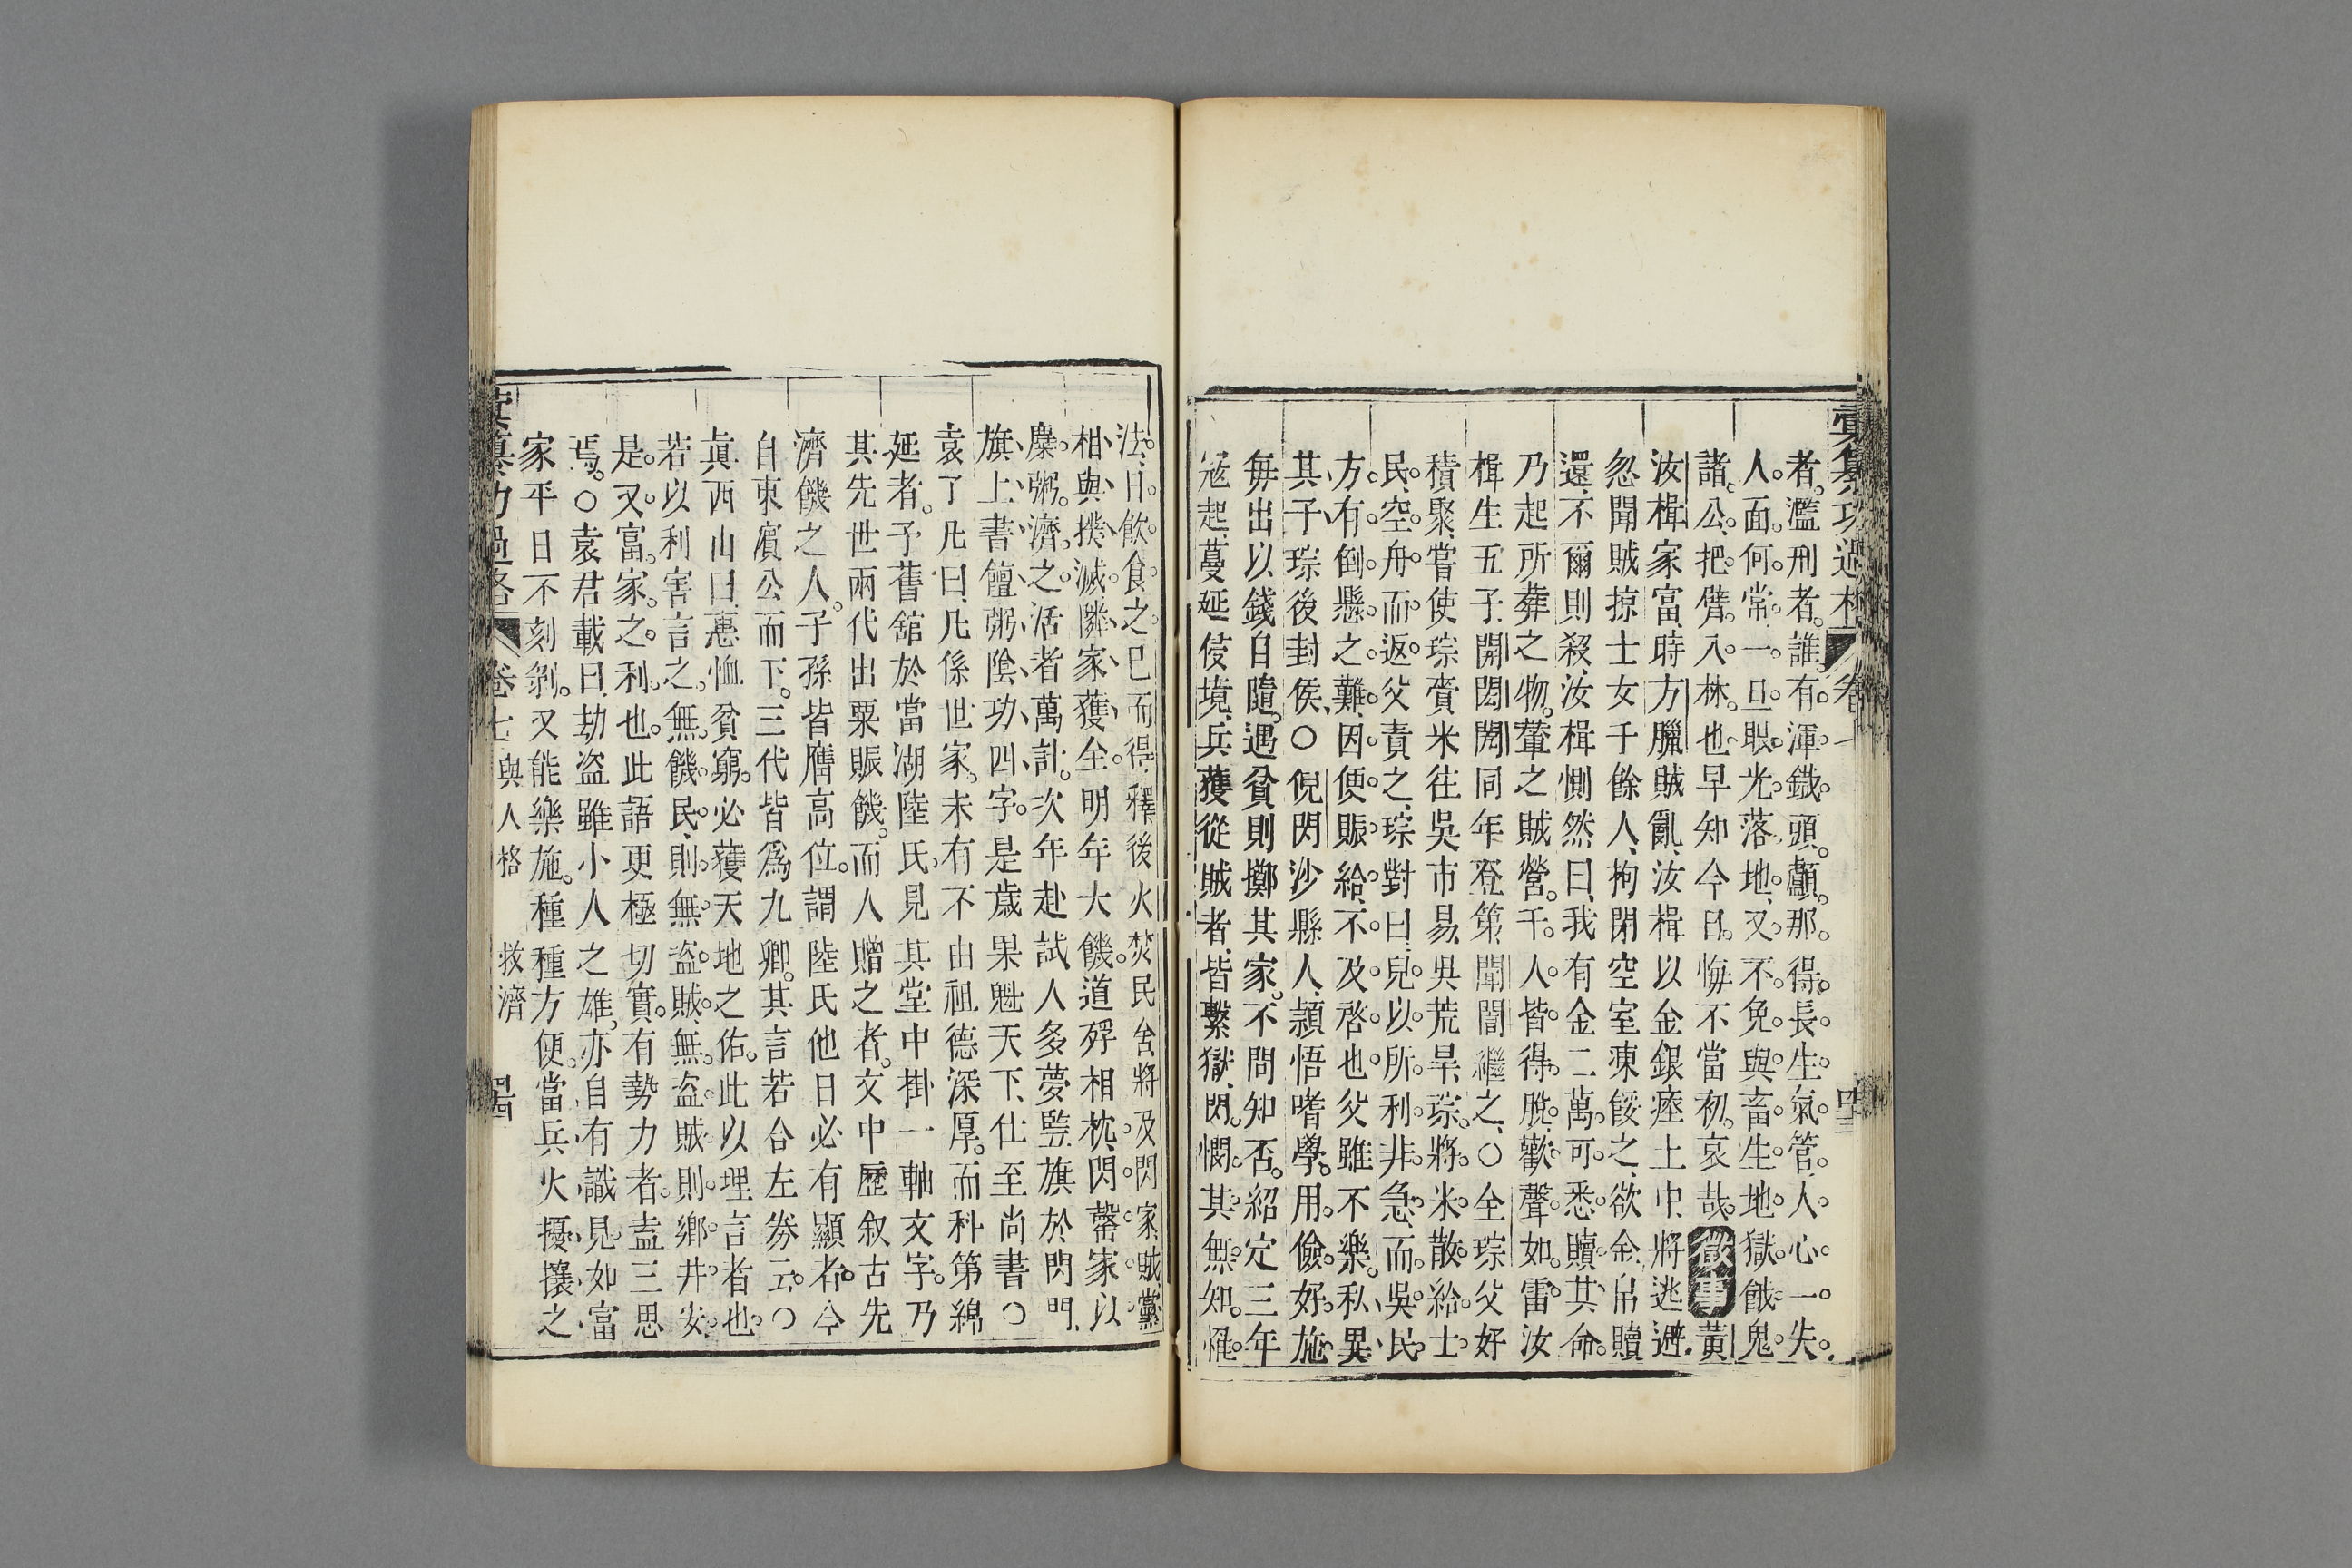 彙纂功過格 卷
者。濫刑者。誰有渾鐵頭顱。那得長生氣管。人心一失。
人面何常。一旦眼光落地。又不免與畜生地獄餓鬼
諸公。把臂入林也。早知今日。悔不當初。哀哉。徵事黃
汝楫家富。時方臘賊亂、汝楫以金銀瘞土中、將逃避。
忽聞賊掠士女千餘人、拘閉空室凍餒之、欲金帛贖
還、不爾則殺、汝楫惻然曰、我有金二萬。可悉贖其命。
乃起所葬之物。輦之賊營。千人皆得脫、歡聲如雷。汝
楫生五子、開閎閱同年登第、聞誾繼之、○全琮父好
積聚、嘗使琮賫米往吳市易、吳荒旱、琮將米散給士
民、空舟而返。父責之、琮對曰、兒以所利非急、而吳民
方有倒懸之難、因便賑給、不及啓也。父雖不樂、私異
其子、琮後封侯、○倪閃沙縣人、頴悟嗜學。用儉好施。
每出以錢自隨。遇貧則擲其家。不問知否。紹定三年
寇起、蔓延侵境、兵獲從賊者、皆繫獄、閃憫其無知。罹
法、日飲食之。已而得釋後火焚民舍將及閃家、賊黨
相與撲滅、隣家獲全。明年大饑。道殍相枕、閃罄家以
糜粥濟之。活者萬計。次年赴試人多夢豎旗於閃門、
旗上書饘粥陰功四字。是歲果魁天下、仕至尚書○
袁了凡曰、凡係世家。未有不由祖德深厚。而科第綿
延者。予舊舘於當湖陸氏、見其堂中掛一軸文字。乃
其先世兩代出粟賑饑。而人贈之者。文中歷叙古先
濟饑之人。子孫皆膺高位。謂陸氏他日必有顯者。今
自東濱公而下。三代皆爲九卿。其言若合左券云。○
眞西山曰、惠恤貧窮。必獲天地之佑。此以埋言者也。
若以利害言之。無饑民、則無盜賊、無盜賊則鄉井安。
是又富家之利也。此語更極切實。有勢力者。盍三思
焉。○袁君載曰、劫盜雖小人之雄。亦自有識見。如富
家平日不刻剝。又能樂施。種種方便。當兵火擾攘之
彙纂功過格 卷七 與人格 救濟